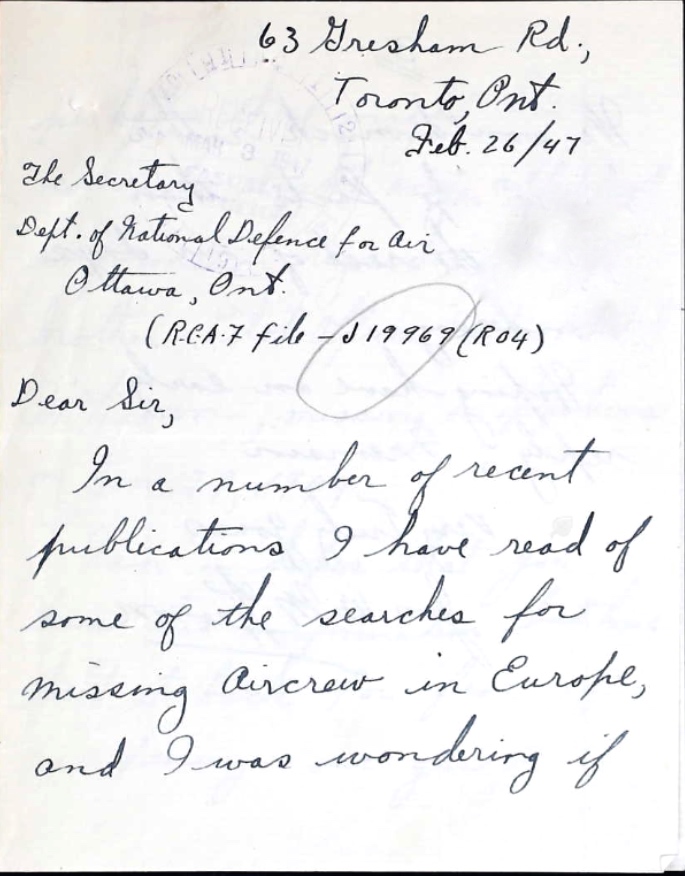 63 Gresham Rd.,
Toronto, Ont.
Feb. 26/47
The Secretary
Dept. of National Defence for Air
Ottawa, Ont.
(R.C.A.F file - J19969 (R04)
Dear Sir,
In a number of recent
publications I have read of
some of the searches for
missing Aircrew in Europe,
and I was wondering if